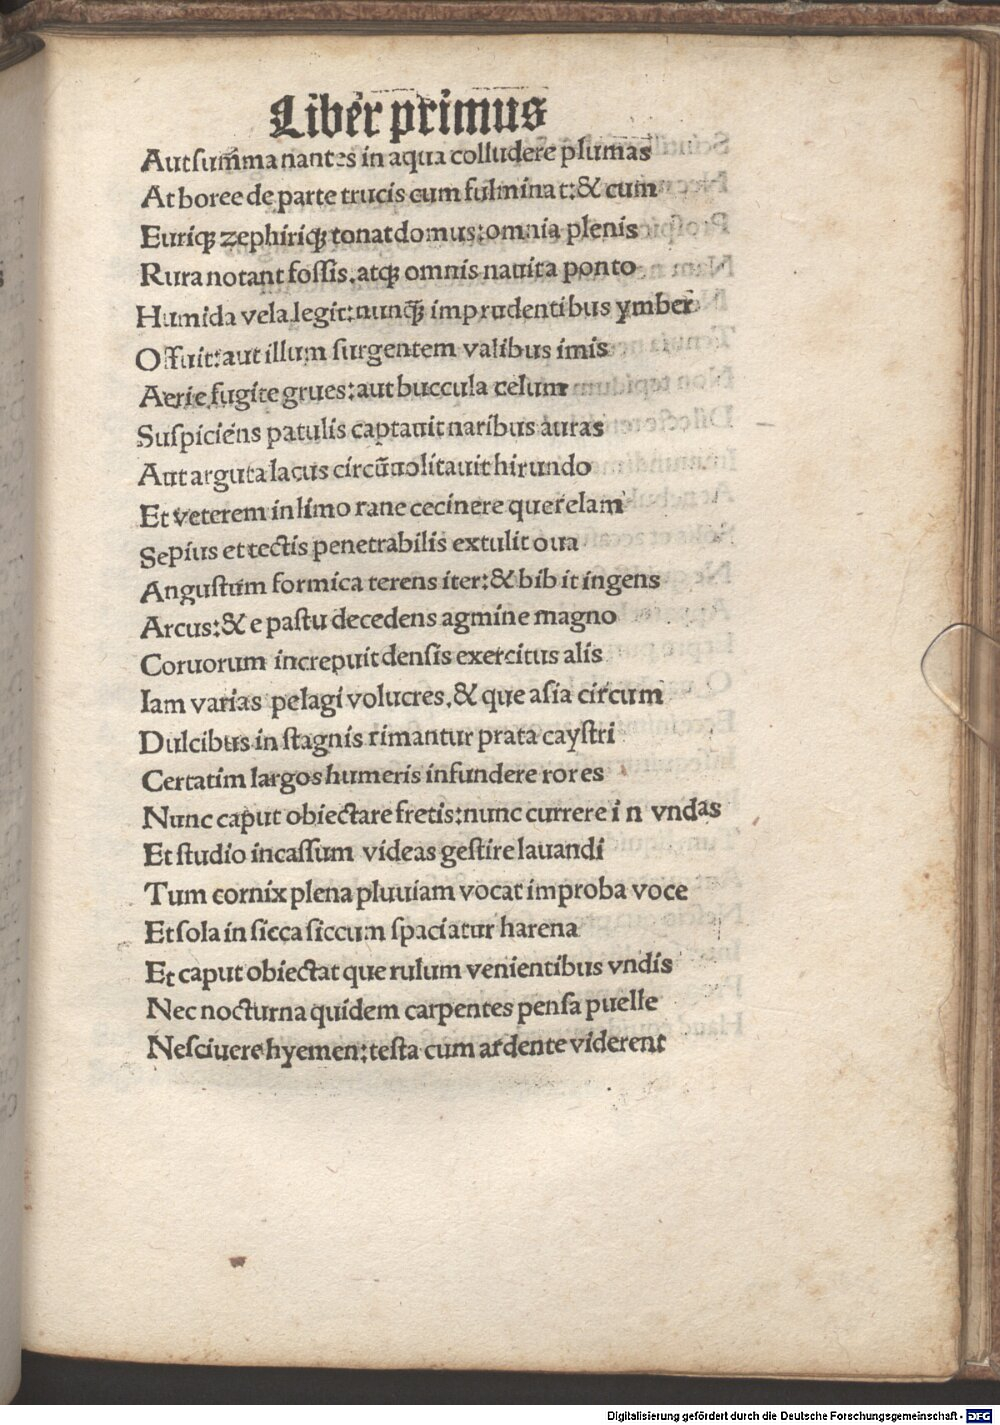 Liber primus
Aut sum̄ma nantes in aqua colludere plumas
At boree de parte trucis cum fulmina t:& cum
Euriqꝫ zephiriqꝫ tonat domus:omnia plenis
Rura notant fossis.atqꝫ omnis nauita ponto
Humida vela legit:nunqꝫ̄ imprudentibus ymber
Offuit:aut illum surgentem valibus imis
Aerie fugite grues:aut buccula celum
Suspiciens patulis captauit naribus auras
Aut arguta lacus circūuolitauit hirundo
Et veterem in limo rane cecinere querelam
Sepius et tectis penetrabilis extulit oua
Angustum formica terens iter:& bib it ingens
Arcus:& e pastu decedens agmine magno
Coruorum increpuit densis exercitus alis
Iam varias pelagi volucres.& que asia circum
Dulcibus in stagnis rimantur prata caystri
Certatim largos humeris infundere rores
Nunc caput obiectare fretis:nunc currere i n vndas
Et studio incassum videas gestire lauandi
Tum cornix plena pluuiam vocat improba voce
Et sola in sicca siccum spaciatur harena
Et caput obiectat que rulum venientibus vndis
Nec nocturna quidem carpentes pensa puelle
Nesciuere hyemen:testa cum ardente viderent
Digitalisierung gefördert durch die Deutsche Forschungsgemeinschaft - DFG